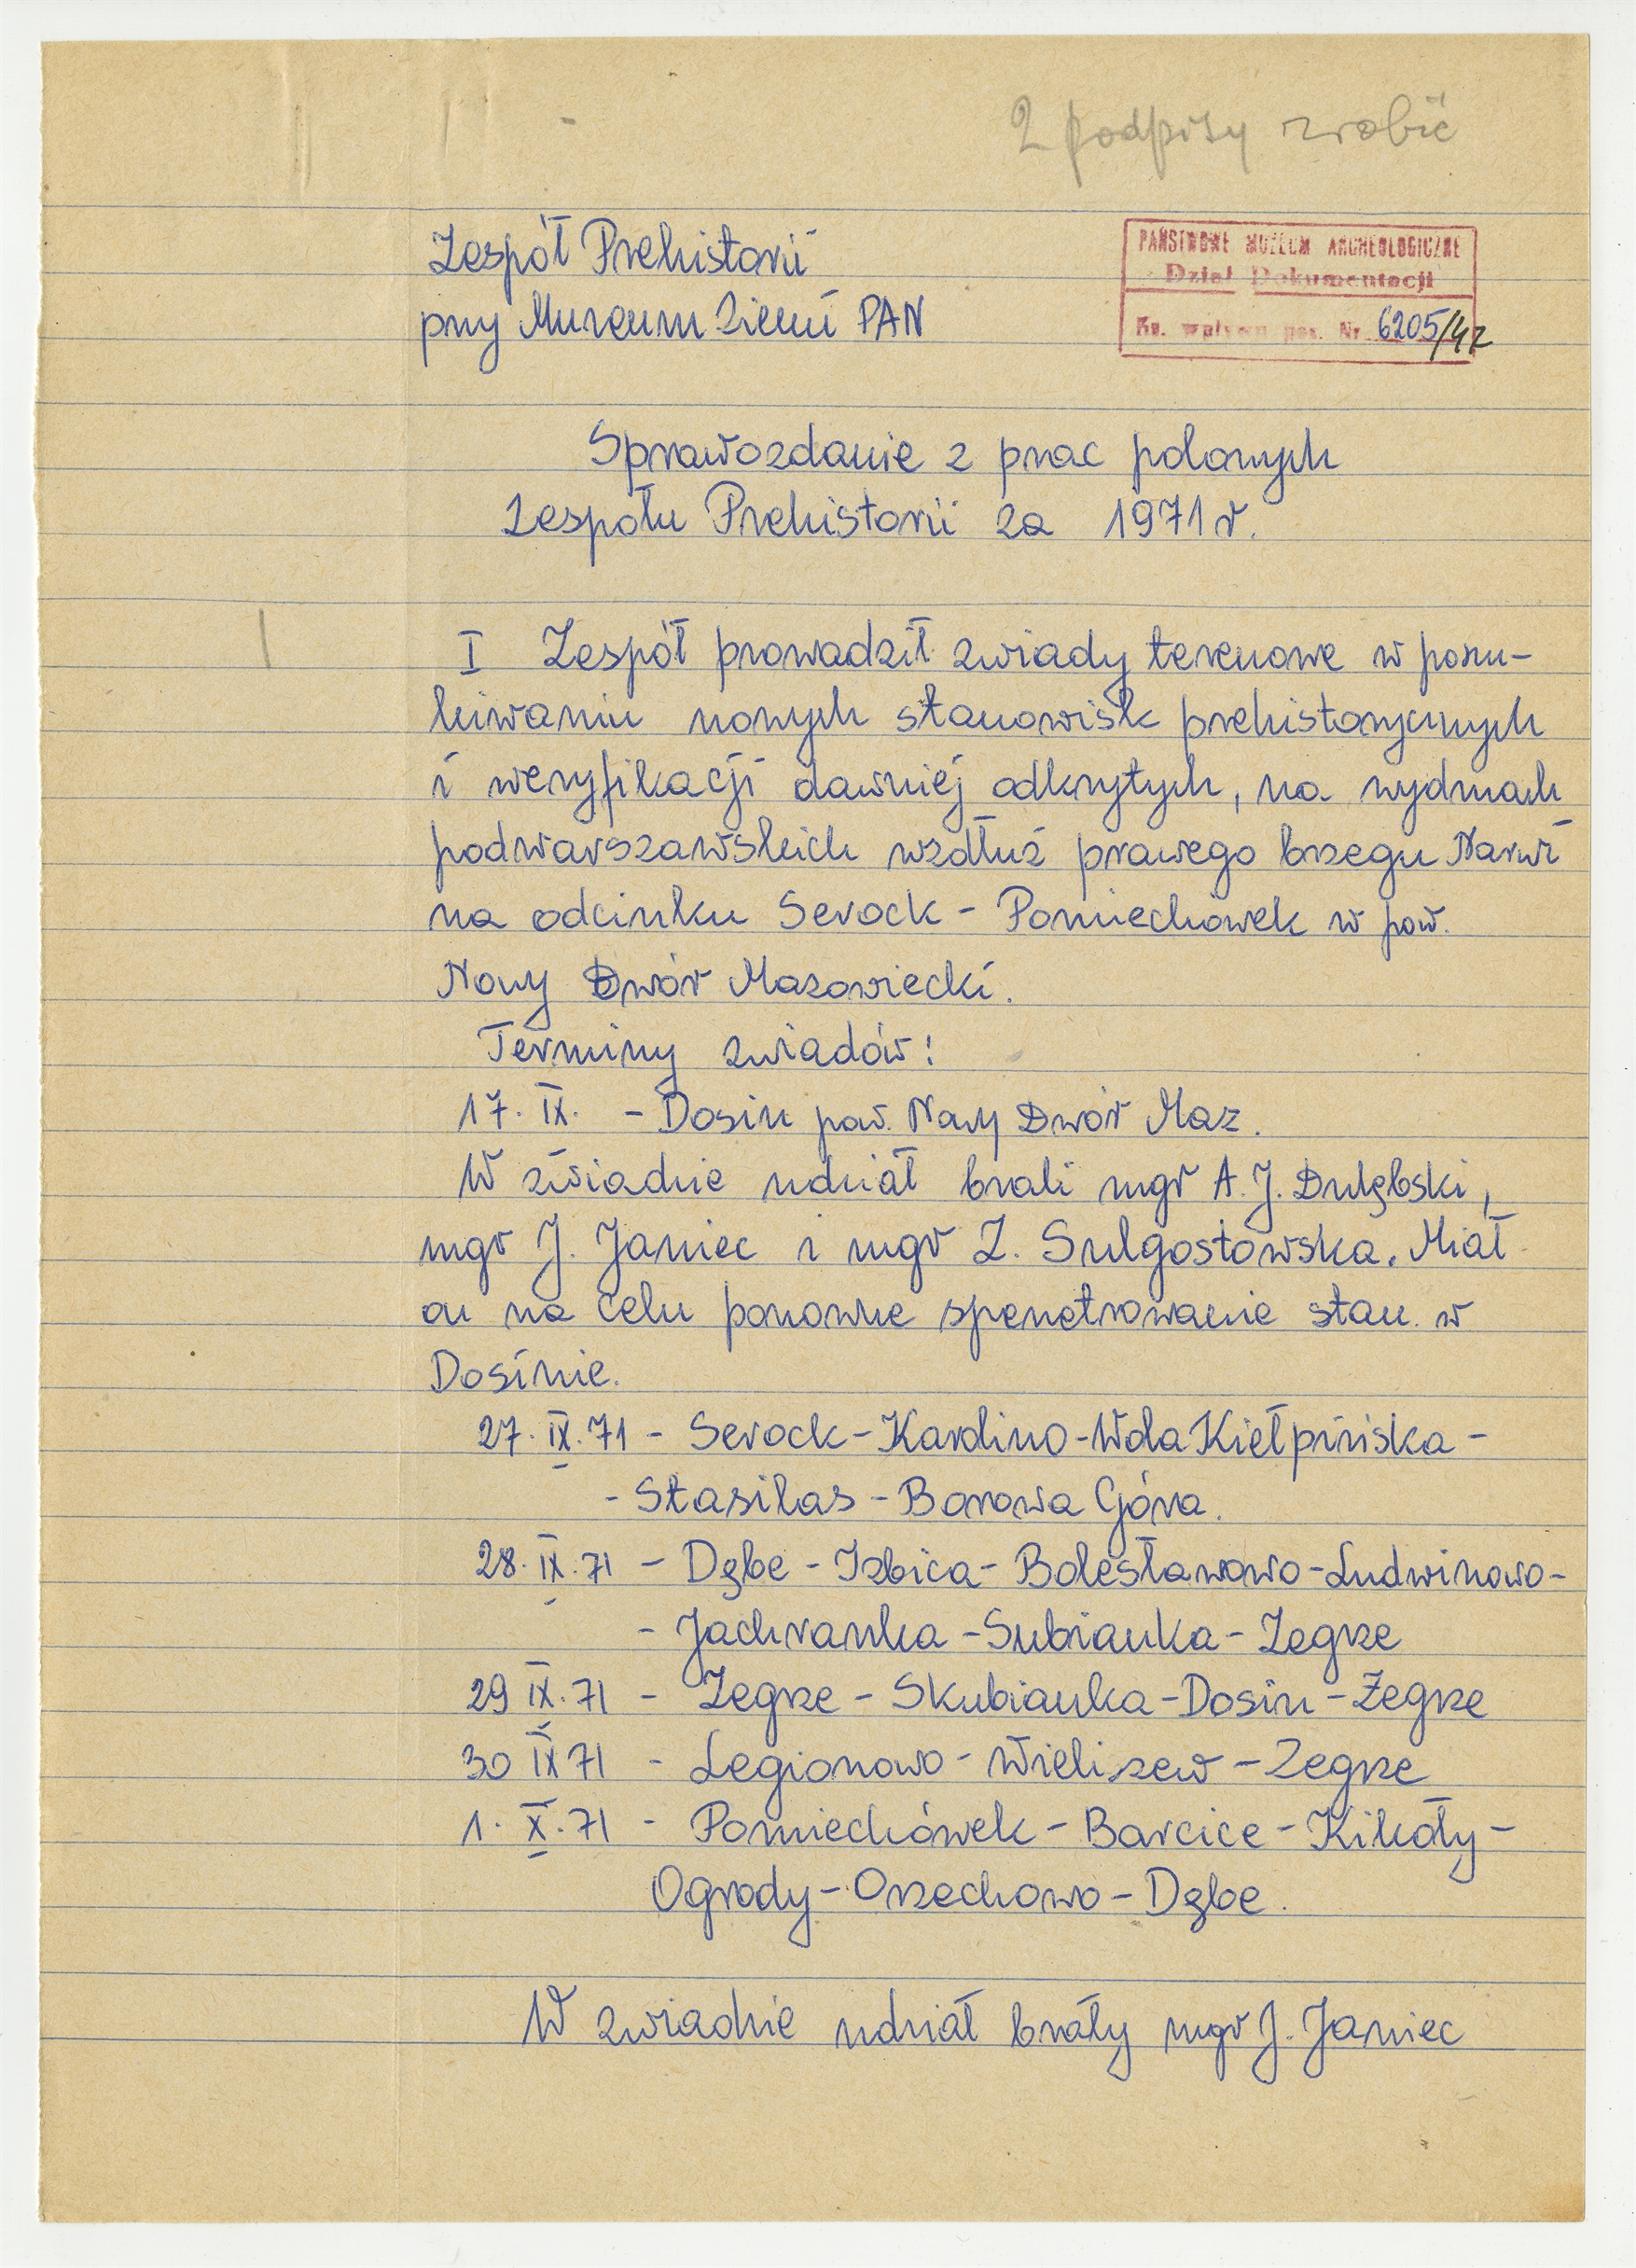 2 podpisy zrobić
Zespół Prehistorii
przy Muzeum Ziemi PAN
PAŃSTWOWE MUZEUM ARCHEOLOGICZNE
Dział Dokumentacji
Ks. wpływu poz. Nr. 6205/42
Sprawozdanie z prac polowych
Zespołu Prehistorii za 1971 r.
I Zespół prowadził zwiady terenowe w poszu-
kiwaniu nowych stanowisk prehistorycznych
i weryfikacji dawniej odkrytych, na wydmach
podwarszawskich wzdłuż prawego brzegu Narwi
na odcinku Serock - Pomiechówek w pow.
Nowy Dwór Mazowiecki.
Terminy zwiadów:
17. IX. - Dosin pow. Nowy Dwór Maz.
W zwiadzie udział brali mgr A. J. Dulębski,
mgr J. Janiec i mgr Z. Sulgostowska. Miał
on na celu ponowne spenetrowanie stan. w
Dosinie.
27. IX. 71 - Serock - Karolino - Wola Kiełpińska -
- Stasilas - Borowa Góra.
28. IX. 71 - Dębe - Izbica - Bolesławowo - Ludwinowo -
- Jachranka - Subianka - Zegrze
29 IX. 71 - Zegrze - Skubianka - Dosin - Zegrze
30 IX 71 - Legionowo - Wieliszew - Zegrze
1. X. 71 - Pomiechówek - Barcice - Kikoły -
Ogrody - Orzechowo - Dębe.
W zwiadzie udział brały mgr J. Janiec